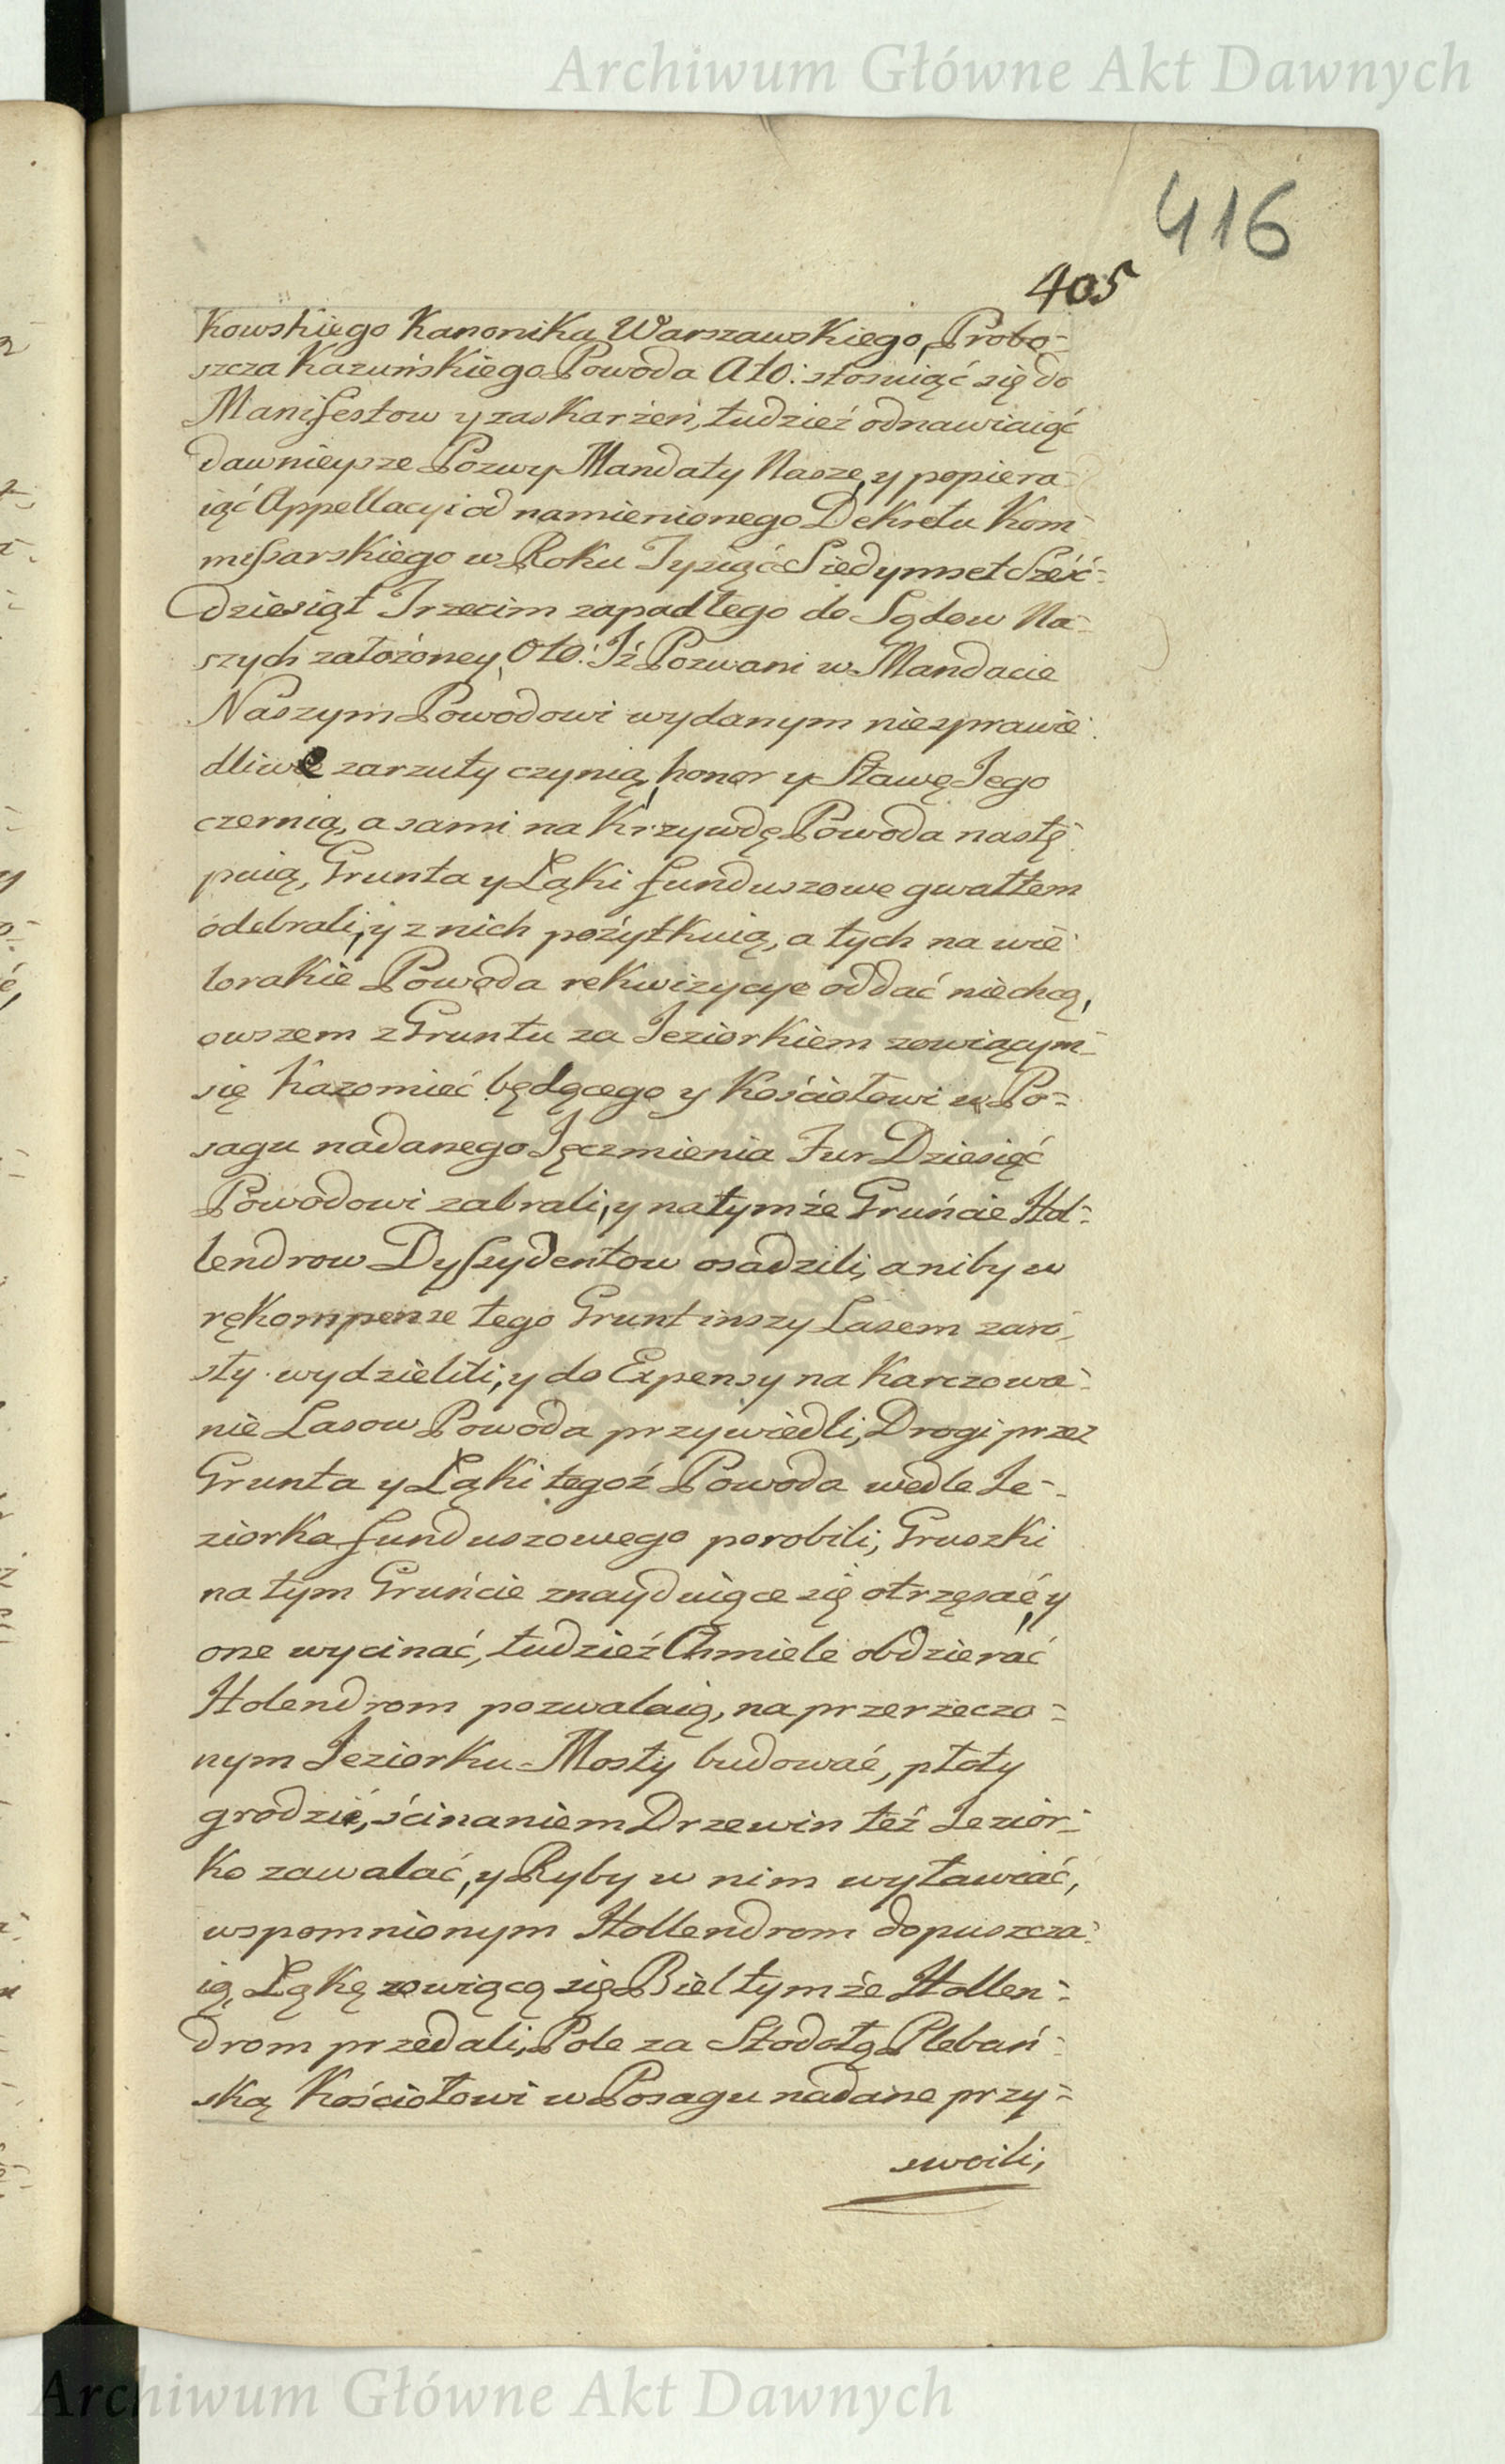 Archiwum Główne Akt Dawnych
416
405
Kowskiego Kanonika Warszawskiego, Probo-
szcza Kazuńskiego Powoda Ato: stosuiąć się do
Manifestow y zaskarżeń, tudzież odnawiaiąć
dawnieysze Pozwy Mandaty Nasze, y popiera-
iąć Appellacyi od namienionego Dekretu Kom-
missarskiego w Roku Tysiąć Siedymset Sześć-
dziesiąt Trzecim zapadłego do Sądow Na-
szych założoney, Oto: Iż Pozwani w Mandacie
Naszym Powodowi wydanym niesprawie-
dliwe zarzuty czynią, honor y Sławę Jego
czernią, a sami na Krzywdę Powoda nastę-
puią, Grunta y Łąki funduszowe gwałtem
odebrali, y z nich pożytkuią, a tych na wie-
lorakie Powoda rekwizycye oddać niechcą,
owszem z Gruntu za Jeziorkiem zowiącym-
się Kazomieć będącego y Kościołowi w Po-
sagu nadanego Jęczmienia Fur Dziesięć
Powodowi zabrali, y na tymże Gruńcie Hol-
lendrow Dyssydentow osadzili, a niby w
rękompense tego Grunt inszy Lasem zaro-
sły wydzielili, y do Expensy na Karczowa-
nie Lasow Powoda przywiedli, Drogi przez
Grunta y Łąki tegoż Powoda wedle Je-
ziorka funduszowego porobili, Gruszki
na tym Gruńcie znayduiące się otrzęsać, y
one wycinać, tudzież Chmiele obdzierać
Holendrom pozwalaią, na przerzeczo-
nym Jeziorku Mosty budować, płoty
grodzić, ścinaniem Drzewin też Jezior-
ko zawalać, y Ryby w nim wyławiać,
wspomnionym Hollendrom dopuszcza-
ią, Łąkę zowiącą się Biel tymże Hollen-
drom przedali, Pole za Stodołą Plebań-
ską Kościołowi w Posagu nadane przy-
swoili,
Archiwum Główne Akt Dawnych